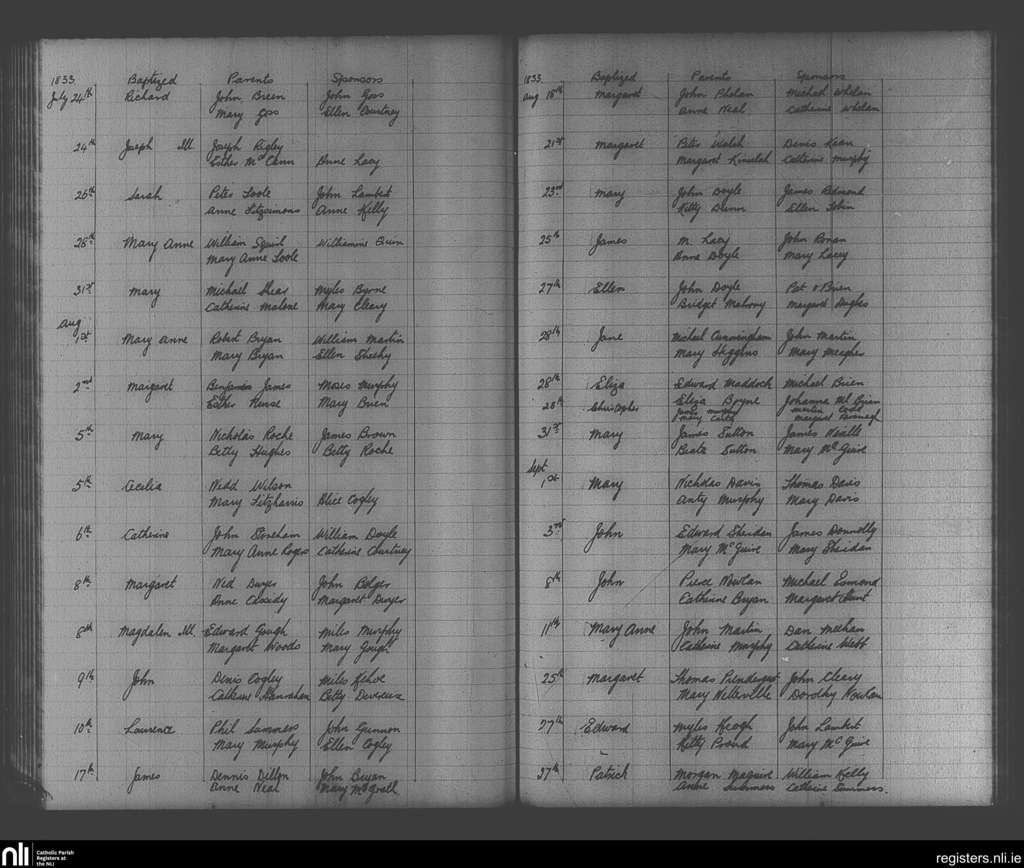 1833 Baptized Parents Sponsors
July 24th Richard John Breen John Goss
Mary Goss Ellen Courtney
24th Joseph Ill Joseph Rigley
Esther McCann Anne Lacy
26th Sarah Peter Toole John Lambert
Anne Fitzsimons Anne Kelly
28th Mary Anne William Squib Williamine
Mary Anne Toole
31st Mary Michael Shea Myles Byrne
Catherine Malone Mary Cleary
Aug
1st Mary Anne Robert Bryan William Martin
Mary Bryan Ellen Sheehy
2nd Margaret Benjamin James Moses Murphy
Esther Mary Brien
5th Mary Nicholas Roche James Brown
Betty Hughes Betty Roche
5th Cecilia Nedd Wilson
Mary Fitzharris Alice Cogley
6th Catherine John Stoneham William Doyle
Mary Anne Rogers Catherine Courtney
8th Margaret Ned Dwyer John Bolger
Anne Cassidy Margaret Dwyer
8th Magdalen Ill. Edward Gough Miles Murphy
Margaret Woods Mary Gough
9th John Denis Cogley Miles Kehoe
Catherine Hanrahan Betty Devereux
10th Laurence Phil Summers John Gannon
Mary Murphy Ellen Cogley
17th James Dennis Dillon John Bryan
Anne Neal Mary McGrath
1833 Baptized Parents Sponsors
Aug 18th Margaret John Phelan Michael Whelan
Anne Neal Catherine Whelan
21st Margaret Peter Walsh Denis Kean
Margaret Kinselah Catherine Murphy
23rd Mary John Doyle James Redmond
Kitty Dunn Ellen John
25th James M. Lacy John Ronan
Anne Doyle Mary Lacey
27th Ellen John Doyle Pat O'Brien
Bridget Mahony Margaret Hughes
28th Jane Michael Cunningham John Martin
Mary Higgins Mary Meagher
28th Eliza Edward Maddock Michael Brien
Eliza Boyne Johanna McBrian
28th Christopher James Murphy Martin Codd
Mary Carty Margaret Kavanagh
31st Mary James Sutton James Neville
Beata Sutton Mary McGuire
Sept
1st Mary Nicholas Davis Thomas Davis
Anty Murphy Mary Davis
3rd John Edward Sheridan James Donnolly
Mary McGuire Mary Sheridan
8th John Pierce Nowlan Michael Esmond
Catherine Bryan Margaret Hunt
11th Mary Anne John Martin Dan Meehan
Catherine Murphy Catherine Webb
25th Margaret Thomas Prendergast John Cleary
Mary Netterville Dorothy Nowlan
27th Edward Myles Keogh John Lambert
Kitty Proud Mary McGuire
27th Patrick Morgan Maguire William Kelly
Anne Summers Catherine Summers.
nli Catholic Parish
Registers at
the NLI
registers.nli.ie